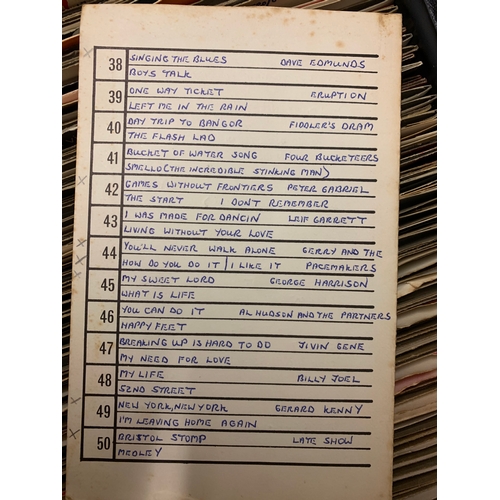 38 SINGING THE BLUES DAVE EDMUNDS
BOYS TALK
39 ONE WAY TICKET ERUPTION
LEFT ME IN THE RAIN
40 DAY TRIP TO BANGOR FIDDLER'S DRAM
THE FLASH LAD
41 BUCKET OF WATER SONG FOUR BUCKETEERS
SMELLO (THE INCREDIBLE STINKING MAN)
42 GAMES WITHOUT FRONTIERS PETER GABRIEL
THE START I DONT REMEMBER
43 I WAS MADE FOR DANCIN LEIF GARRETT
LIVING WITHOUT YOUR LOVE
44 YOU'LL NEVER WALK ALONE GERRY AND THE
HOW DO YOU DO IT / I LIKE IT PACEMAKERS
45 MY SWEET LORD GEORGE HARRISON
WHAT IS LIFE
46 YOU CAN DO IT AL HUDSON AND THE PARTNERS
HAPPY FEET
47 BREAKING UP IS HARD TO DO JIVIN GENE
MY NEED FOR LOVE
48 MY LIFE BILLY JOEL
52ND STREET
49 NEW YORK, NEW YORK GERARD KENNY
I'M LEAVING HOME AGAIN
50 BRISTOL STOMP LATE SHOW
MEDLEY